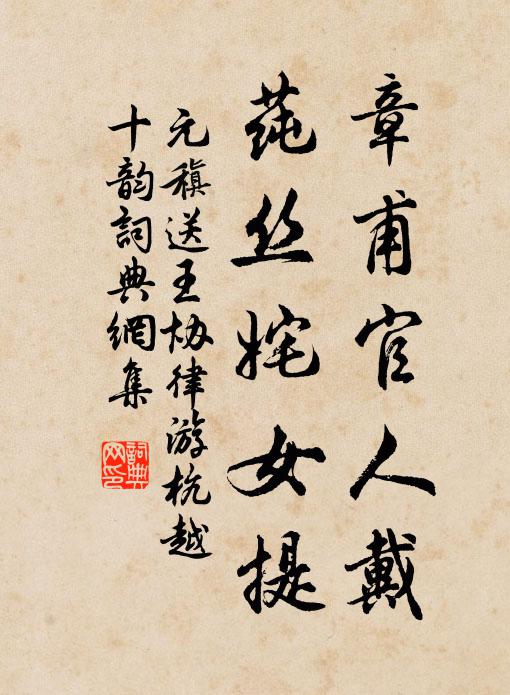 章甫官人戴
莼丝姹女提
元稹送王协律游杭越
十韵詞典網集
詞典
网印